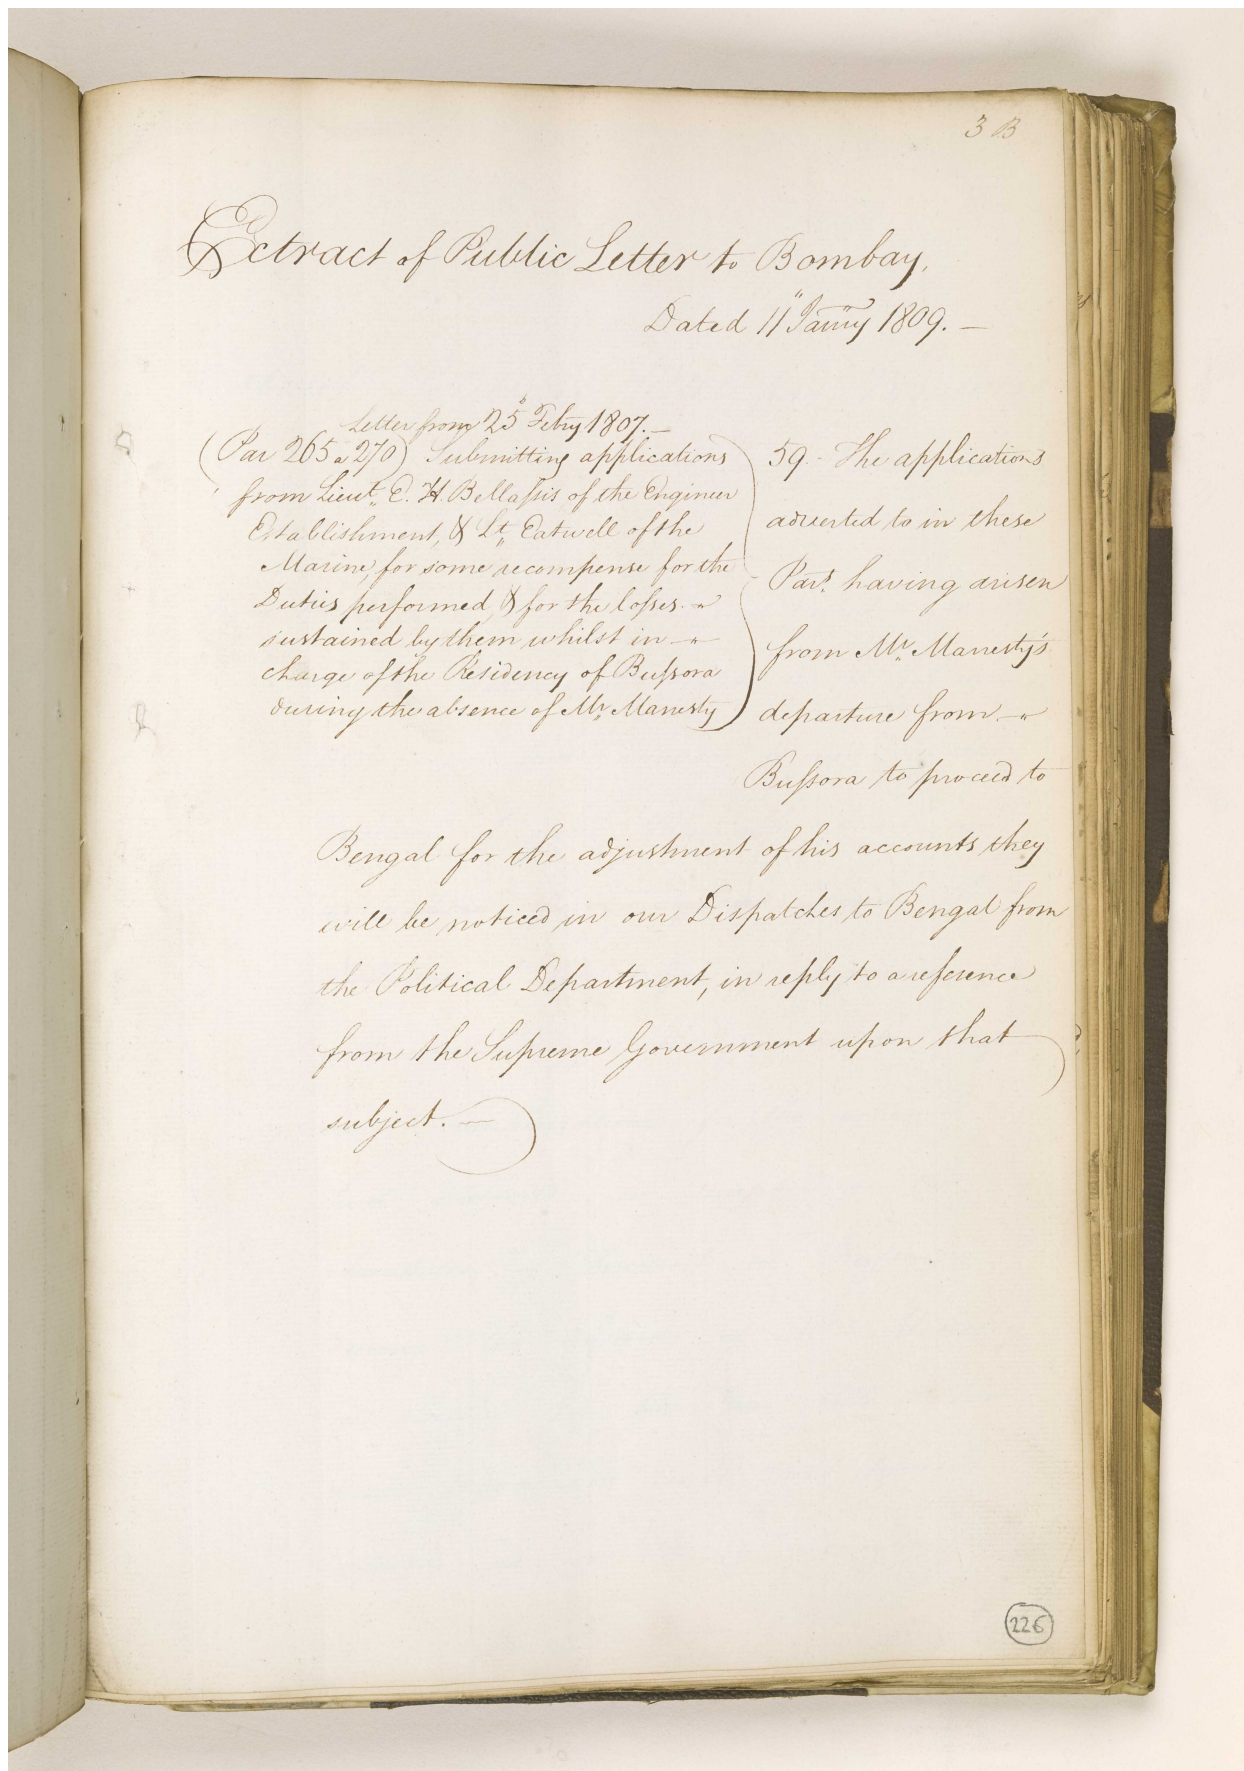 3 B
Extract of Public Letter to Bombay,
Dated 11" Janry 1809. —
Letter from 25" Febry 1807. —
(Par 265 a 270) Submitting applications
from Lieut. E. H. Bellaſsis of the Engineer
Establishment, & Lt. Eatwell of the
Marine, for some recompense for the
Duties performed, & for the loſses
sustained by them whilst in
charge of the Residency of Buſsora
during the absence of Mr. Manesty
59. The applications
adverted to in these
Pars. having arisen
from Mr. Manesty's
departure from
Buſsora to proceed to
Bengal for the adjustment of his accounts they
will be noticed in our Dispatches to Bengal from
the Political Department, in reply to a reference
from the Supreme Government upon that
subject. —
226